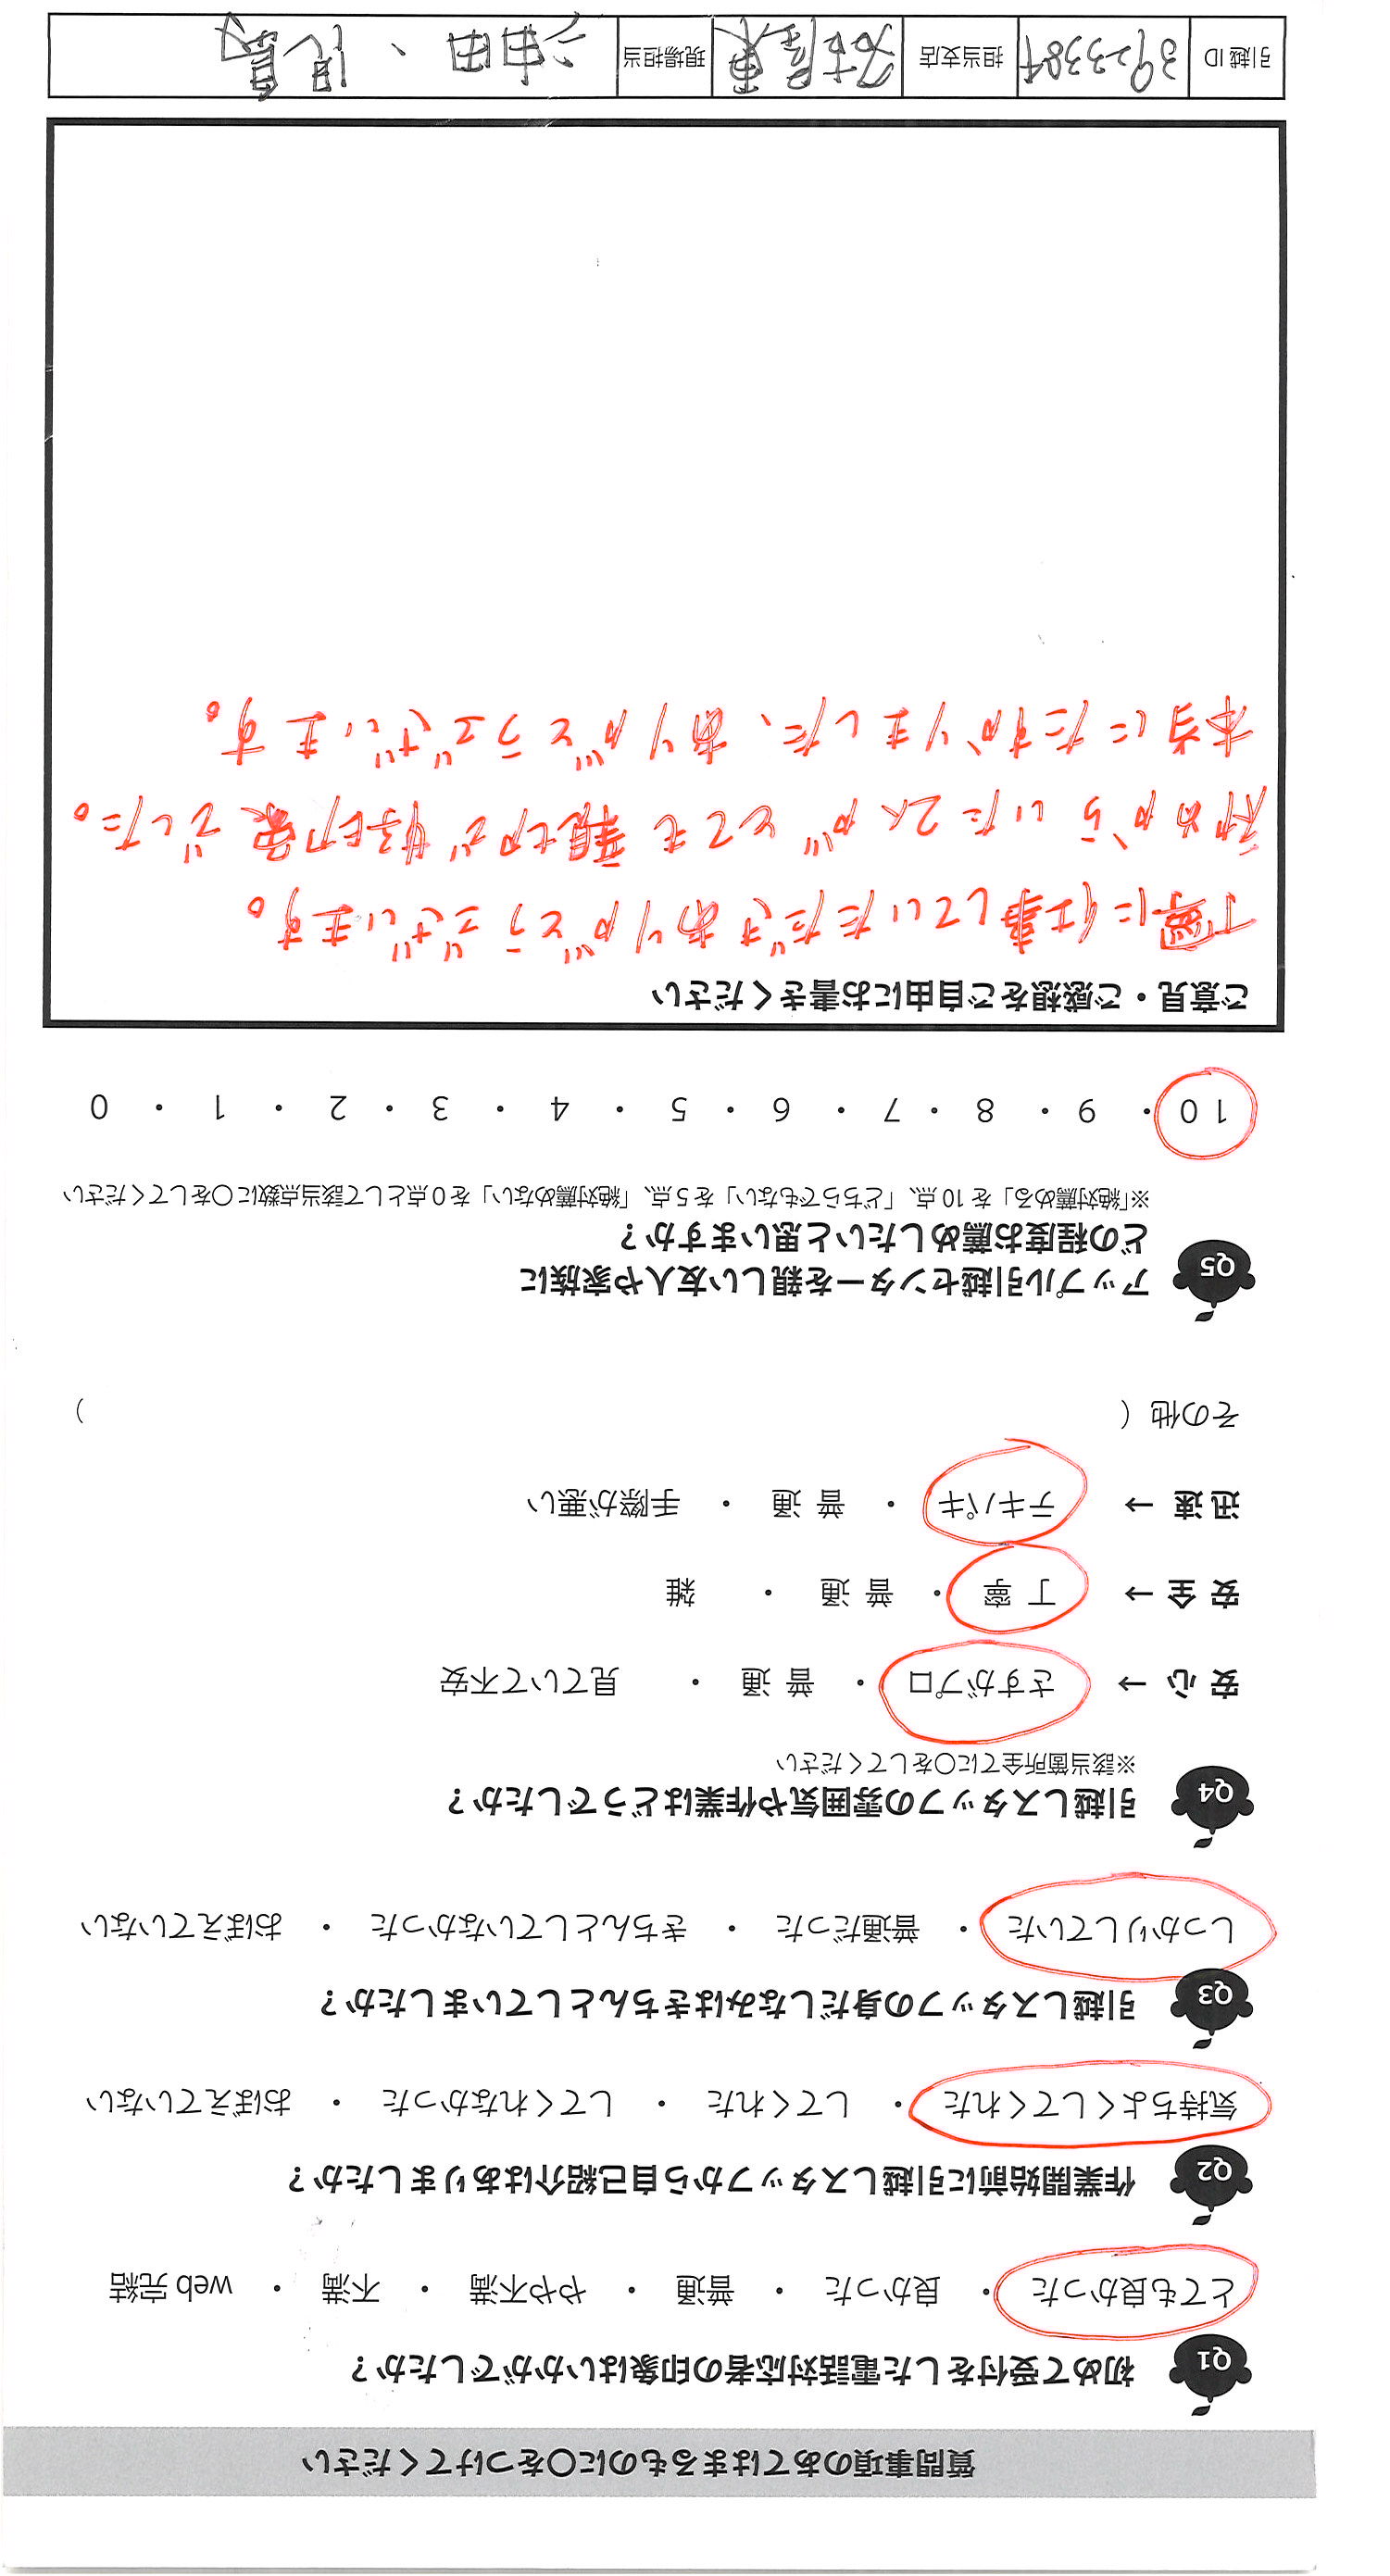 質問事項のあてはまるものに○をつけてください
Q1 初めて受付をした電話対応者の印象はいかがでしたか？
とても良かった ・ 良かった ・ 普通 ・ やや不満 ・ 不満 ・ web完結
Q2 作業開始前に引越しスタッフから自己紹介はありましたか？
気持ちよくしてくれた ・ してくれた ・ してくれなかった ・ おぼえていない
Q3 引越しスタッフの身だしなみはきちんとしていましたか？
しっかりしていた ・ 普通だった ・ きちんとしていなかった ・ おぼえていない
Q4 引越しスタッフの雰囲気や作業はどうでしたか？
※該当箇所全てに○をしてください
安心 → さすがプロ ・ 普通 ・ 見ていて不安
安全 → 丁寧 ・ 普通 ・ 雑
迅速 → テキパキ ・ 普通 ・ 手際が悪い
その他（ ）
Q5 アップル引越センターを親しい友人や家族に
どの程度お薦めしたいと思いますか？
※「絶対薦める」を10点、「どちらでもない」を5点、「絶対薦めない」を0点として該当点数に○をしてください
10 ・ 9 ・ 8 ・ 7 ・ 6 ・ 5 ・ 4 ・ 3 ・ 2 ・ 1 ・ 0
ご意見・ご感想をご自由にお書きください
丁寧に仕事していただきありがとうございます。
初めからいた2人がとても親切で好印象でした。
本当にたすかりました、ありがとうございます。
引越ID 3923384 担当支店 名古屋東 現場担当